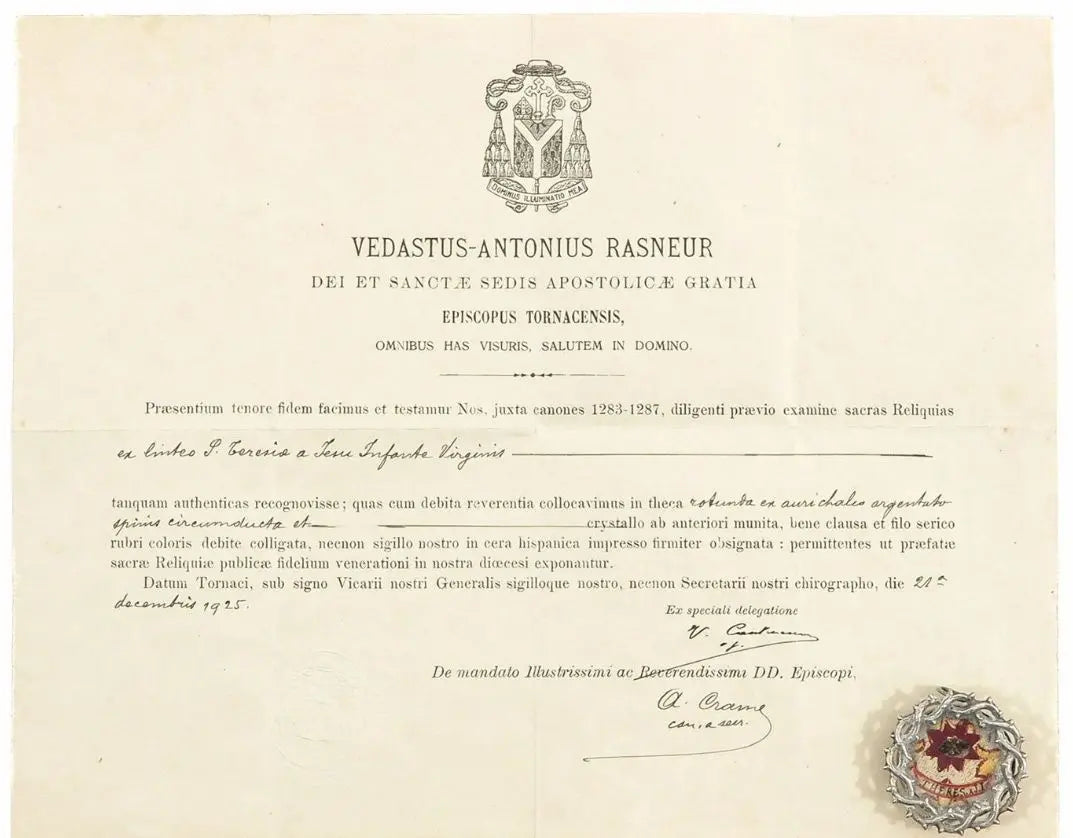 DOMINUS ILLUMINATIO MEA
VEDASTUS-ANTONIUS RASNEUR
DEI ET SANCTÆ SEDIS APOSTOLICÆ GRATIA
EPISCOPUS TORNACENSIS,
OMNIBUS HAS VISURIS, SALUTEM IN DOMINO.
Præsentium tenore fidem facimus et testamur Nos, juxta canones 1283-1287, diligenti prævio examine sacras Reliquias
ex linteo S. Teresiæ a Jesu Infante Virginis
tanquam authenticas recognovisse; quas cum debita reverentia collocavimus in theca rotunda ex aurichalco argentato
spinis circumducta et crystallo ab anteriori munita, bene clausa et filo serico
rubri coloris debite colligata, necnon sigillo nostro in cera hispanica impresso firmiter obsignata : permittentes ut præfatæ
sacræ Reliquiæ publicæ fidelium venerationi in nostra diœcesi exponantur.
Datum Tornaci, sub signo Vicarii nostri Generalis sigilloque nostro, necnon Secretarii nostri chirographo, die 21ª
decembris 1925.
Ex speciali delegatione
V.
De mandato Illustrissimi ac Reverendissimi DD. Episcopi,
A. Crame
can. a secr.